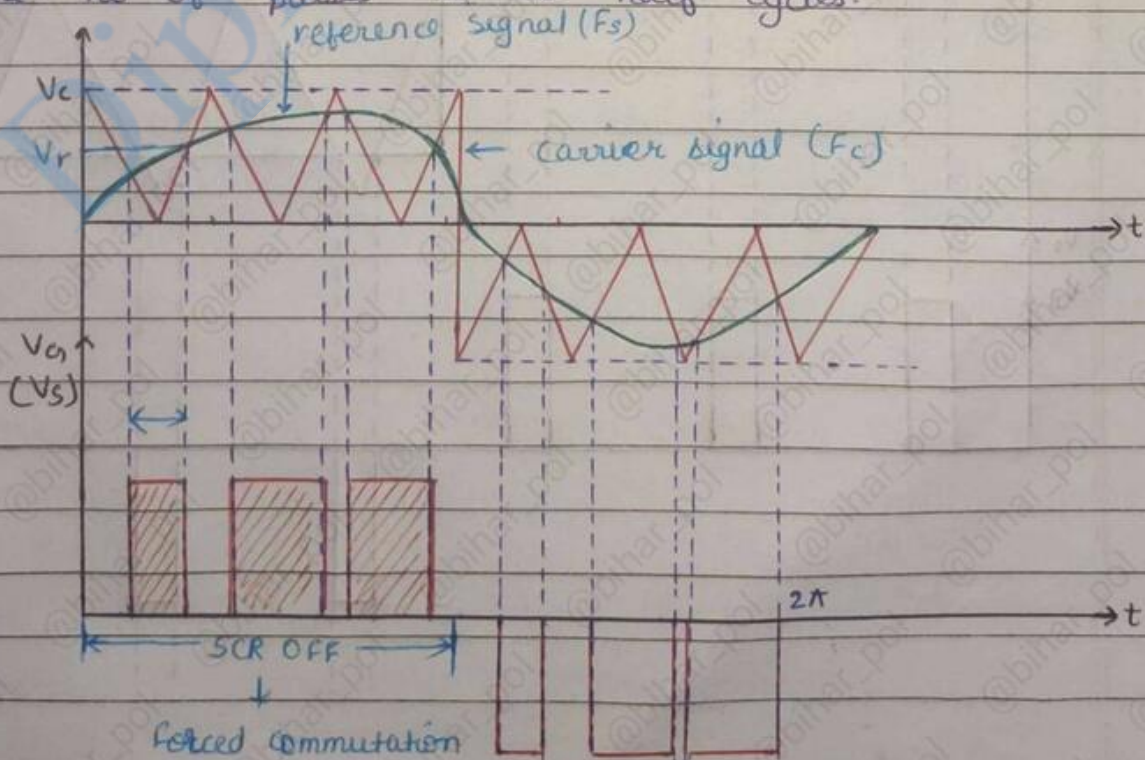 reference signal (Fs)
Vc
Vr
carrier signal (Fc)
t
VG
(Vs)
2π
t
SCR OFF
forced commutation
@bihar_pol